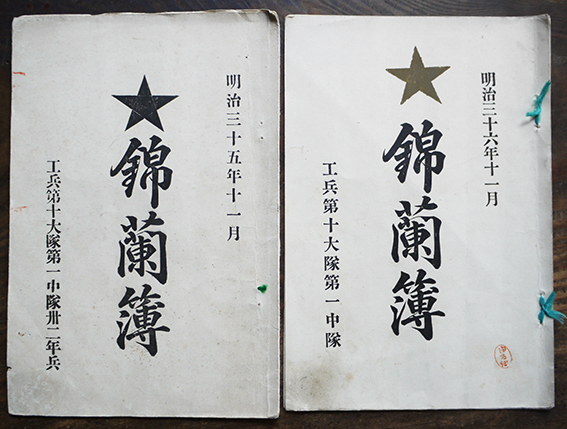 明治三十五年十一月
錦蘭簿
工兵第十大隊第一中隊卅二年兵
明治三十六年十一月
錦蘭簿
工兵第十大隊第一中隊